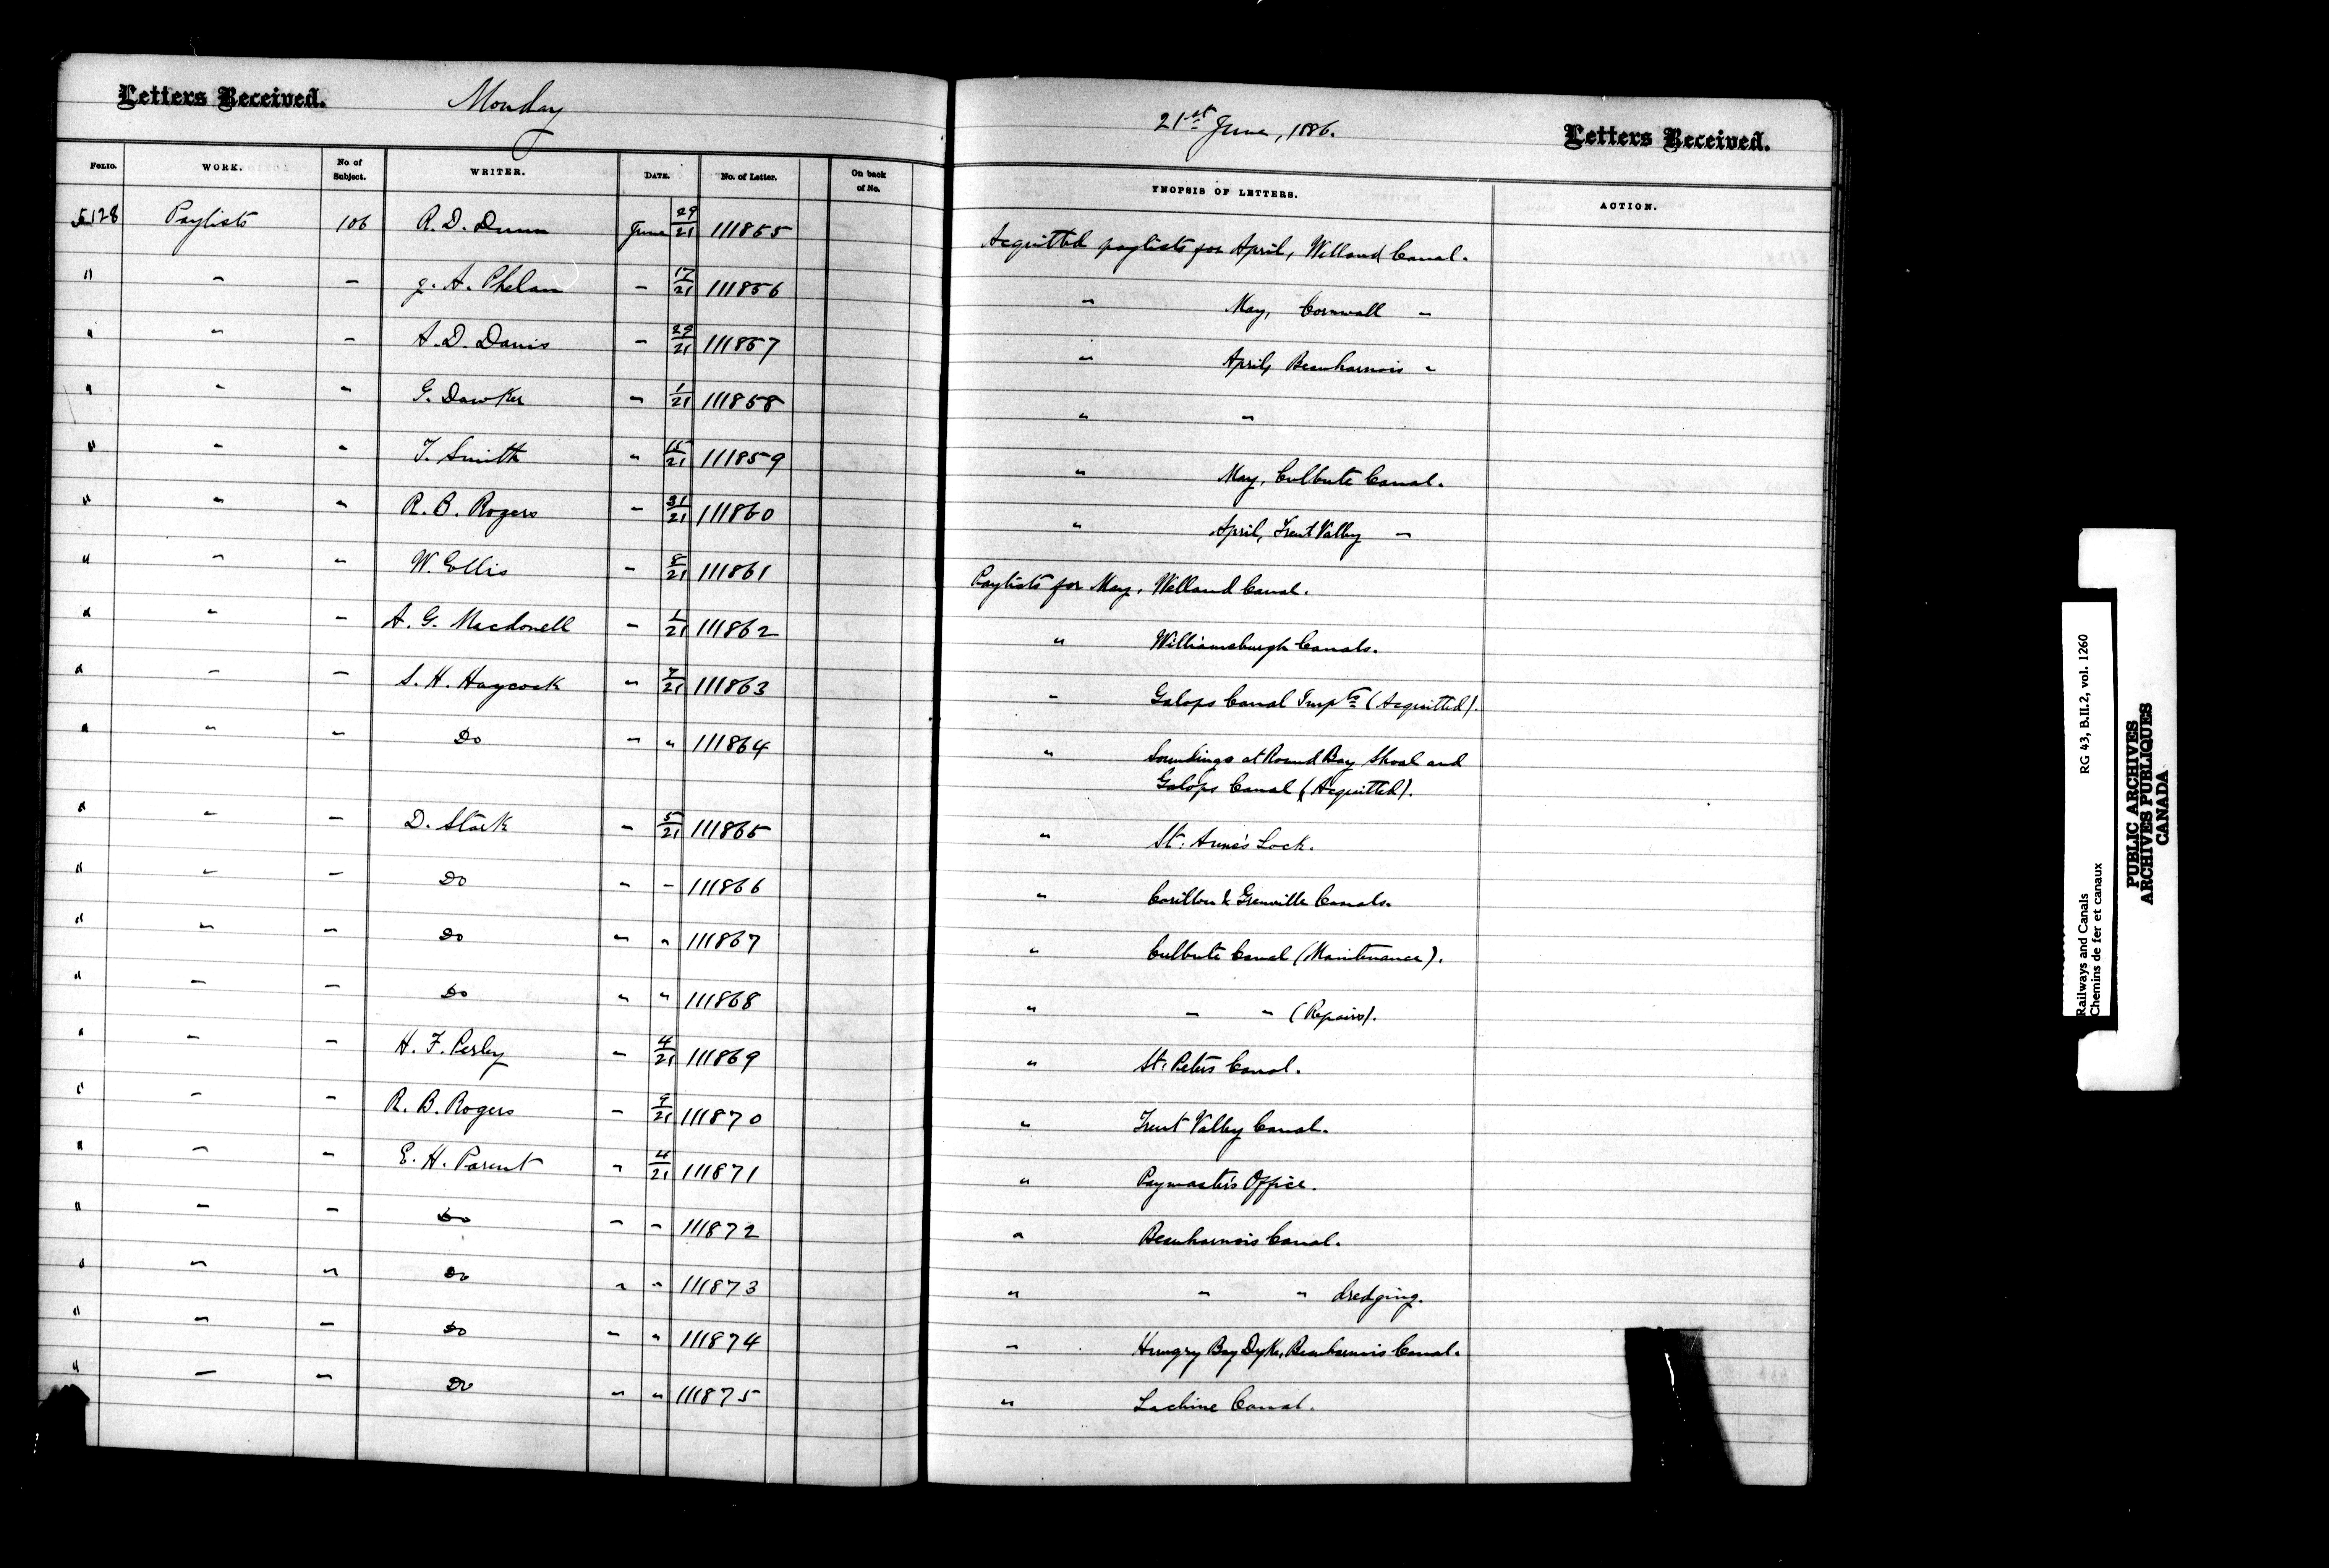 Letters Received. Monday 21st June, 1886. Letters Received.
FOLIO. WORK. No. of Subject. WRITER. DATE. No. of Letter. On back of No. YNOPSIS OF LETTERS. ACTION.
5128 Paylists 106 R. D. Dunn June 29/21 111855 Acquitted paylists for April, Welland Canal.
" " " J. A. Phelan " 17/21 111856 " May, Cornwall "
" " " A. D. Danis " 29/21 111857 " April, Beauharnois "
" " " G. Dawker " 1/21 111858 " "
" " " T. Smith " 15/21 111859 " May, Culbute Canal.
" " " R. B. Rogers " 31/21 111860 " April, Trent Valley "
" " " W. Ellis " 8/21 111861 Paylists for May, Welland Canal.
" " " A. G. Macdonell " 1/21 111862 " Williamsburgh Canals.
" " " S. H. Haycock " 7/21 111863 " Galops Canal Impts (Acquitted).
" " " Do " " 111864 " Soundings at Round Bay Shoal and
Galops Canal (Acquitted).
" " " D. Stark " 5/21 111865 " St. Anne's Lock.
" " " Do " " 111866 " Carillon & Grenville Canals.
" " " Do " " 111867 " Culbute Canal (Maintenance).
" " " Do " " 111868 " " " (Repairs).
" " " H. F. Perley " 4/21 111869 " St. Peters Canal.
" " " R. B. Rogers " 9/21 111870 " Trent Valley Canal.
" " " E. H. Parent " 4/21 111871 " Paymaster's Office.
" " " Do " " 111872 " Beauharnois Canal.
" " " Do " " 111873 " " " dredging.
" " " Do " " 111874 " Hungry Bay Dyke, Beauharnois Canal.
" " " Do " " 111875 " Lachine Canal.
Railways and Canals RG 43, B.II.2, vol. 1260
Chemins de fer et canaux
PUBLIC ARCHIVES
ARCHIVES PUBLIQUES
CANADA